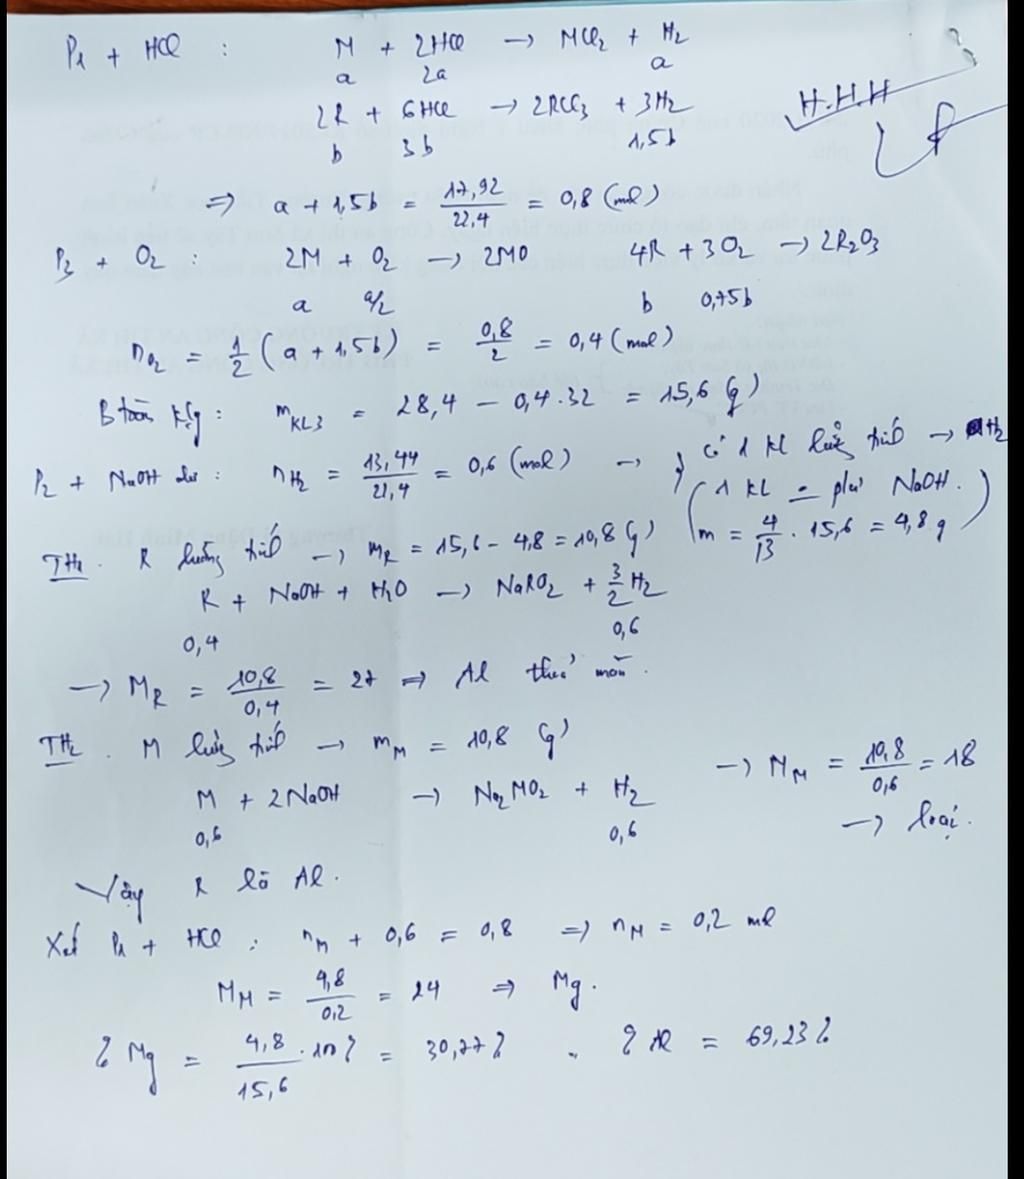 P₁ + HCl : M + 2HCl → MCl₂ + H₂
a 2a a
2R + 6HCl → 2RCl₃ + 3H₂
b 3b 1,5b
H.H.H
⇒ a + 1,5b = 17,92/22,4 = 0,8 (mol)
P₃ + O₂ : 2M + O₂ → 2MO 4R + 3O₂ → 2R₂O₃
a a/2 b 0,75b
nO₂ = 1/2 (a + 1,5b) = 0,8/2 = 0,4 (mol)
B toàn klg : mKL3 = 28,4 – 0,4.32 = 15,6 (g)
P₂ + NaOH dư : nH₂ = 13,44/22,4 = 0,6 (mol) → có 1 KL lưỡng tính → H₂
1 KL – pứ NaOH.
(m = 4/13 . 15,6 = 4,8 g)
TH₁. R lưỡng tính → mR = 15,6 – 4,8 = 10,8 (g)
R + NaOH + H₂O → NaRO₂ + 3/2 H₂
0,4 0,6
→ MR = 10,8/0,4 = 27 ⇒ Al thoả mãn.
TH₂. M lưỡng tính → mM = 10,8 (g)
M + 2NaOH → Na₂MO₂ + H₂ → MM = 10,8/0,6 = 18
0,6 0,6 → loại.
Vậy R là Al.
Xét P₁ + HCl : nM + 0,6 = 0,8 ⇒ nM = 0,2 mol
MM = 4,8/0,2 = 24 ⇒ Mg.
% Mg = 4,8/15,6 . 100% = 30,77% .. % Al = 69,23%